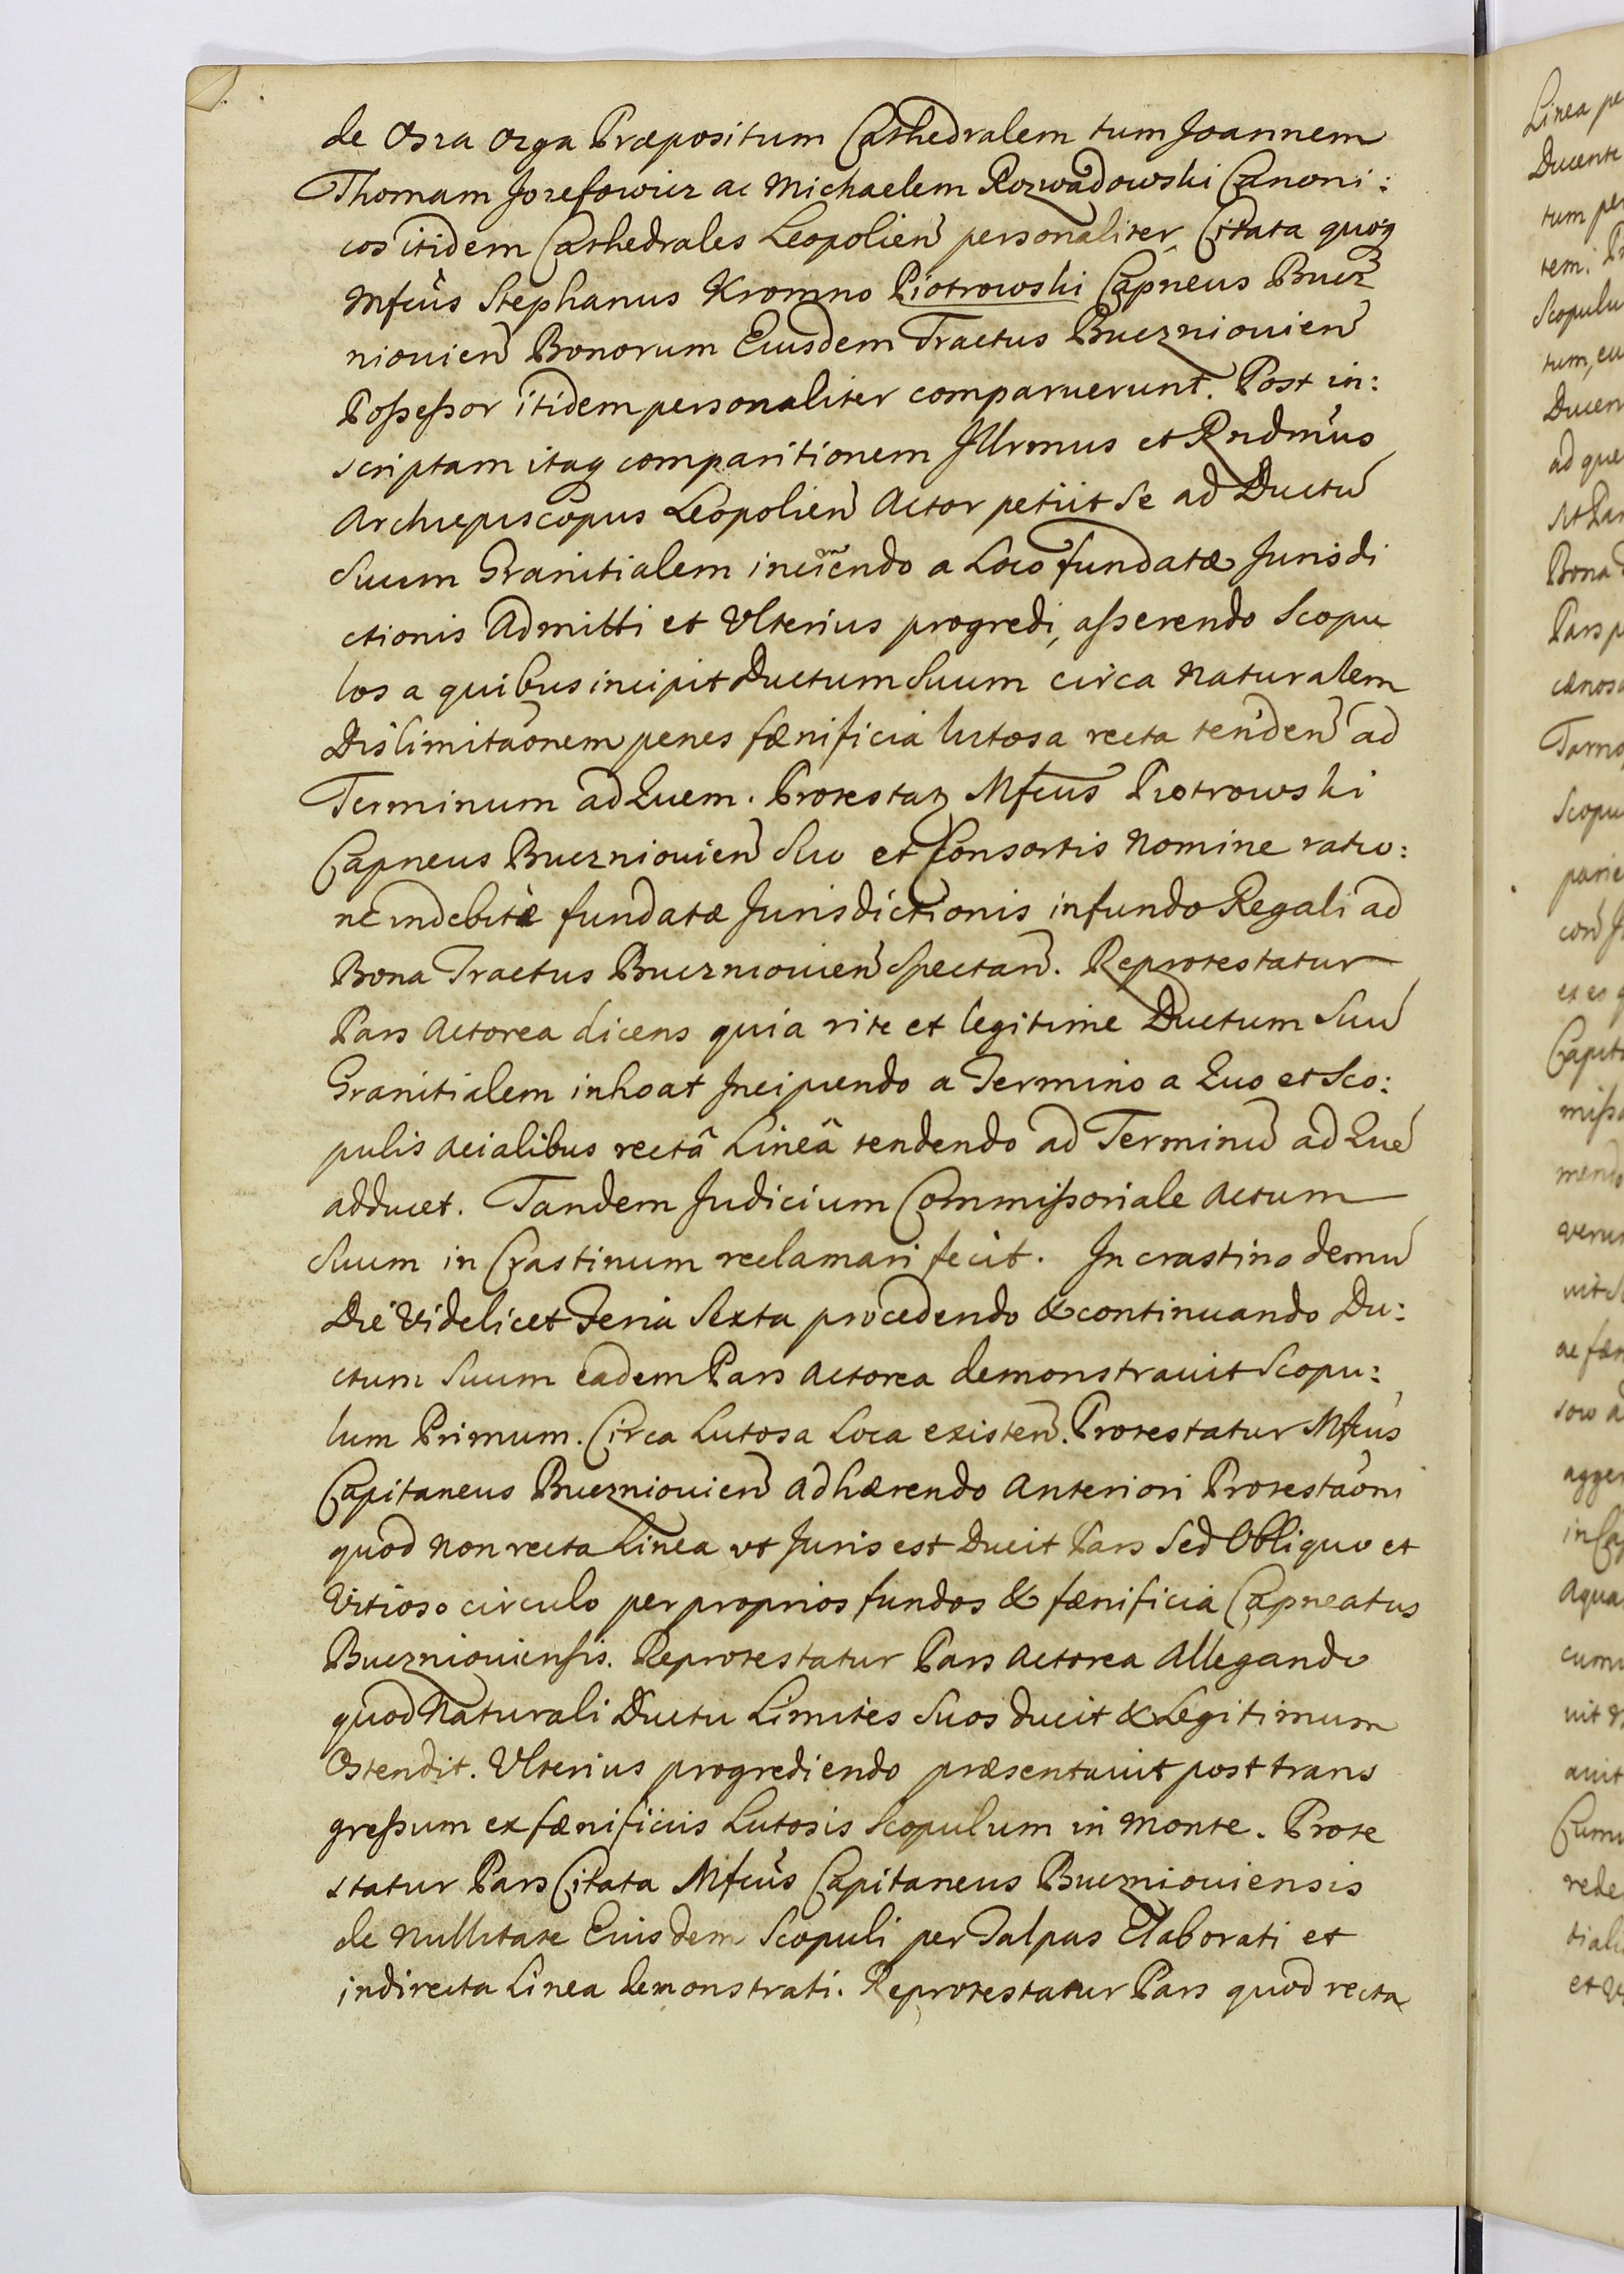 de Osza Orga Præpositum Cathedralem tum Joannem
Thomam Jozefowicz ac Michaelem Rozwadowski Canoni:
cos itidem Cathedrales Leopolien personaliter, Citata quoq
Mfcus Stephanus Kromno Piotrowski Capneus Bucz
niovien Bonorum Eiusdem Tractus Buczniovien
Possessor itidem personaliter comparuerunt. Post in:
scriptam itaq comparitionem Illrmus et Rndmus
Archiepiscopus Leopolien Actor petiit se ad Ductu
Suum Granitialem inciendo a Loco fundatæ Jurisdi
ctionis Admitti et Ulterius progredi, asserendo Scopu
los a quibus incipit Ductum Suum circa Naturalem
Dislimitaonem penes fænificia lutosa recta tenden ad
Terminum ad Quem. Protestaz Mfcus Piotrowski
Capneus Buczniovien Suo et Consortis Nomine ratio:
ne indebitæ fundatæ Jurisdictionis in fundo Regali ad
Bona Tractus Buczniovien Spectan. Reprotestatur
Pars Actorea dicens quia rite et legitime Ductum Suu
Granitialem inhoat Incipiendo a Termino a Quo et Sco:
pulis acialibus rectâ Lineâ tendendo ad Terminu ad Que
adducet. Tandem Judicium Commissoriale Actum
Suum in Crastinum reclamari fecit. In crastino demu
Die Videlicet Feria Sexta procedendo & continuando Du:
ctum Suum eadem Pars Actorea demonstravit Scopu:
lum Primum. Circa Lutosa Loca existen. Protestatur Mfcus
Capitaneus Buczniovien Adhærendo Anteriori Protestaoni
quod Non recta Linea ut Juris est Ducit Pars Sed Obliquo et
Vitioso circulo per proprios fundos & fænificia Capneatus
Buczniouiensis. Reprotestatur Pars Actorea Allegando
quod Naturali Ductu Limites Suos ducit & Legitimum
Ostendit. Ulterius progrediendo præsentavit post trans
gressum ex fænificiis Lutosis Scopulum in Monte. Prote
statur Pars Citata Mfcus Capitaneus Buczniouiensis
de Nullitate Eiusdem Scopuli per Talpas Elaborati et
indirecta Linea demonstrati. Reprotestatur Pars quod recta